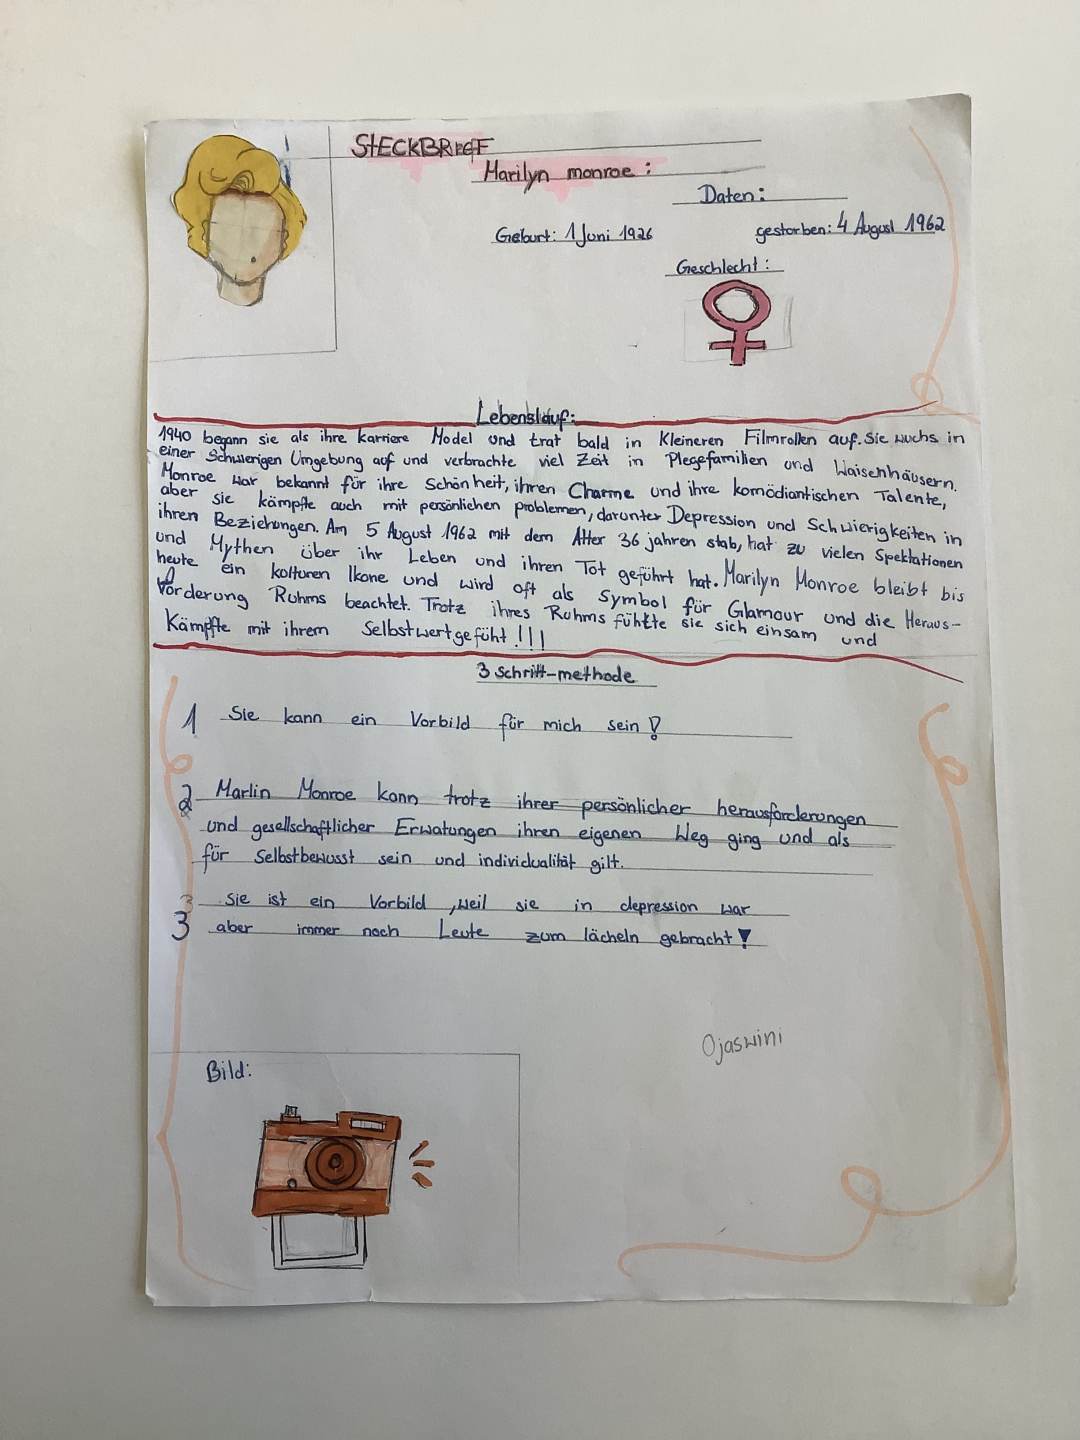 STECKBRIEF
Marilyn monroe:
Daten:
Geburt: 1 Juni 1926
gestorben: 4 August 1962
Geschlecht:
Lebenslauf:
1940 begann sie als ihre karriere Model und trat bald in Kleineren Filmrollen auf. Sie wuchs in
einer Schwierigen Umgebung auf und verbrachte viel Zeit in Plegefamilien und Waisenhäusern.
Monroe war bekannt für ihre Schönheit, ihren Charme und ihre komödiantischen Talente,
aber sie kämpfte auch mit persönlichen problemen, darunter Depression und Schwierigkeiten in
ihren Beziehungen. Am 5 August 1962 mit dem Alter 36 jahren stab, hat zu vielen Spektationen
und Mythen über ihr Leben und ihren Tot geführt hat. Marilyn Monroe bleibt bis
heute ein kolturen Ikone und wird oft als Symbol für Glamour und die Heraus-
vorderung Ruhms beachtet. Trotz ihres Ruhms fühlte sie sich einsam und
Kämpfte mit ihrem Selbstwertgefüht!!!
3 Schritt-methode
1 Sie kann ein Vorbild für mich sein!
2 Marlin Monroe kann trotz ihrer persönlicher herausforderungen
und gesellschaftlicher Erwatungen ihren eigenen Weg ging und als
für Selbstbewusst sein und individualität gilt.
3 Sie ist ein Vorbild, weil sie in depression war
3 aber immer noch Leute zum lächeln gebracht!
Ojaswini
Bild: